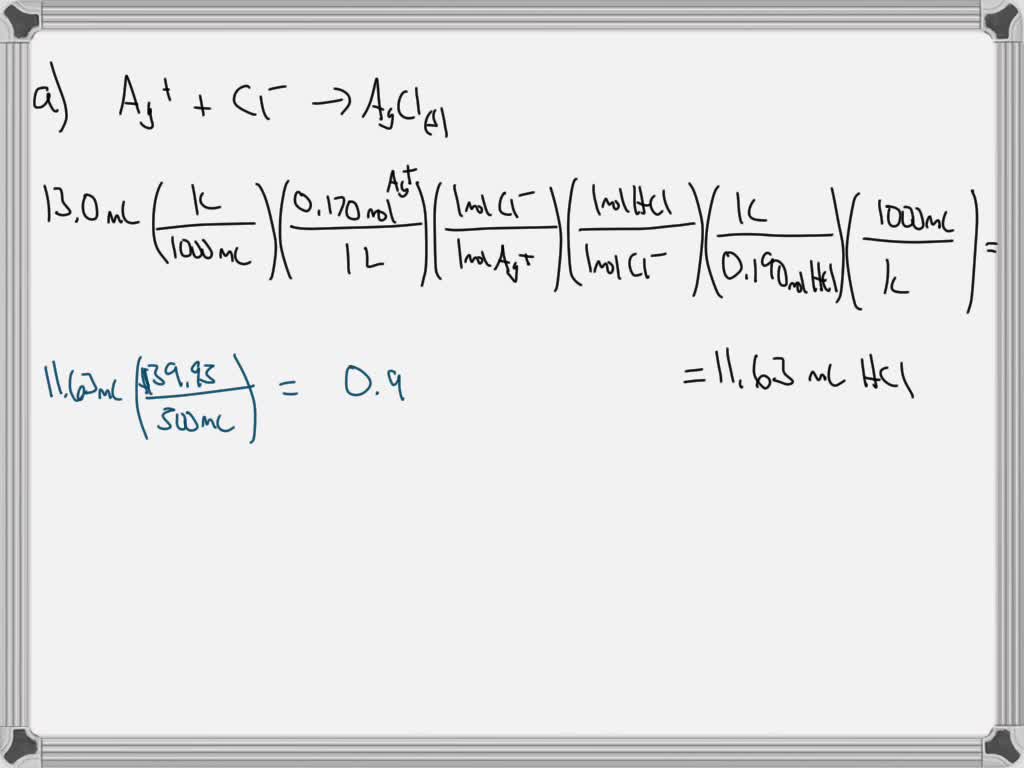 a) Ag⁺ + Cl⁻ → AgCl(s)
13.0 mL (1L / 1000 mL)(0.170 mol Ag⁺ / 1 L)(1 mol Cl⁻ / 1 mol Ag⁺)(1 mol HCl / 1 mol Cl⁻)(1L / 0.190 mol HCl)(1000 mL / 1L) =
= 11.63 mL HCl
11.63 mL ($39.95 / 500 mL) = 0.9